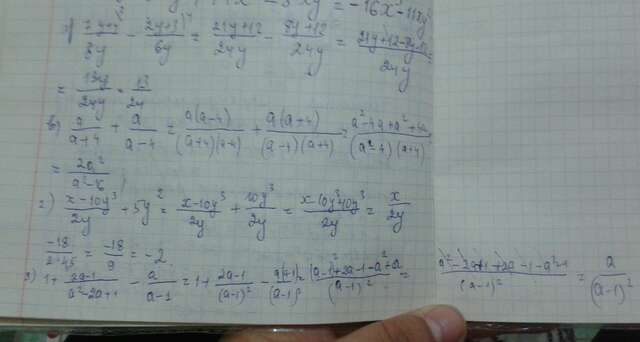 = -16x² - 11xy
б) (7y+4)/8y - (2y+3)/6y = (21y+12)/24y - (8y+12)/24y = (21y+12-8y-12)/24y
= 13y/24y = 13/24
в) a/(a+4) + a/(a-4) = a(a-4)/(a+4)(a-4) + a(a+4)/(a-4)(a+4) = (a²-4a+a²+4a)/(a-4)(a+4)
= 2a²/(a²-16)
г) (x-10y³)/2y + 5y² = (x-10y³)/2y + 10y³/2y = (x-10y³+10y³)/2y = x/2y
-18/(2·4,5) = -18/9 = -2
3) 1 + (2a-1)/(a²-2a+1) - a/(a-1) = 1 + (2a-1)/(a-1)² - a(a-1)/(a-1)² = ((a-1)²+2a-1-a²+a)/(a-1)² =
= a/(a-1)²